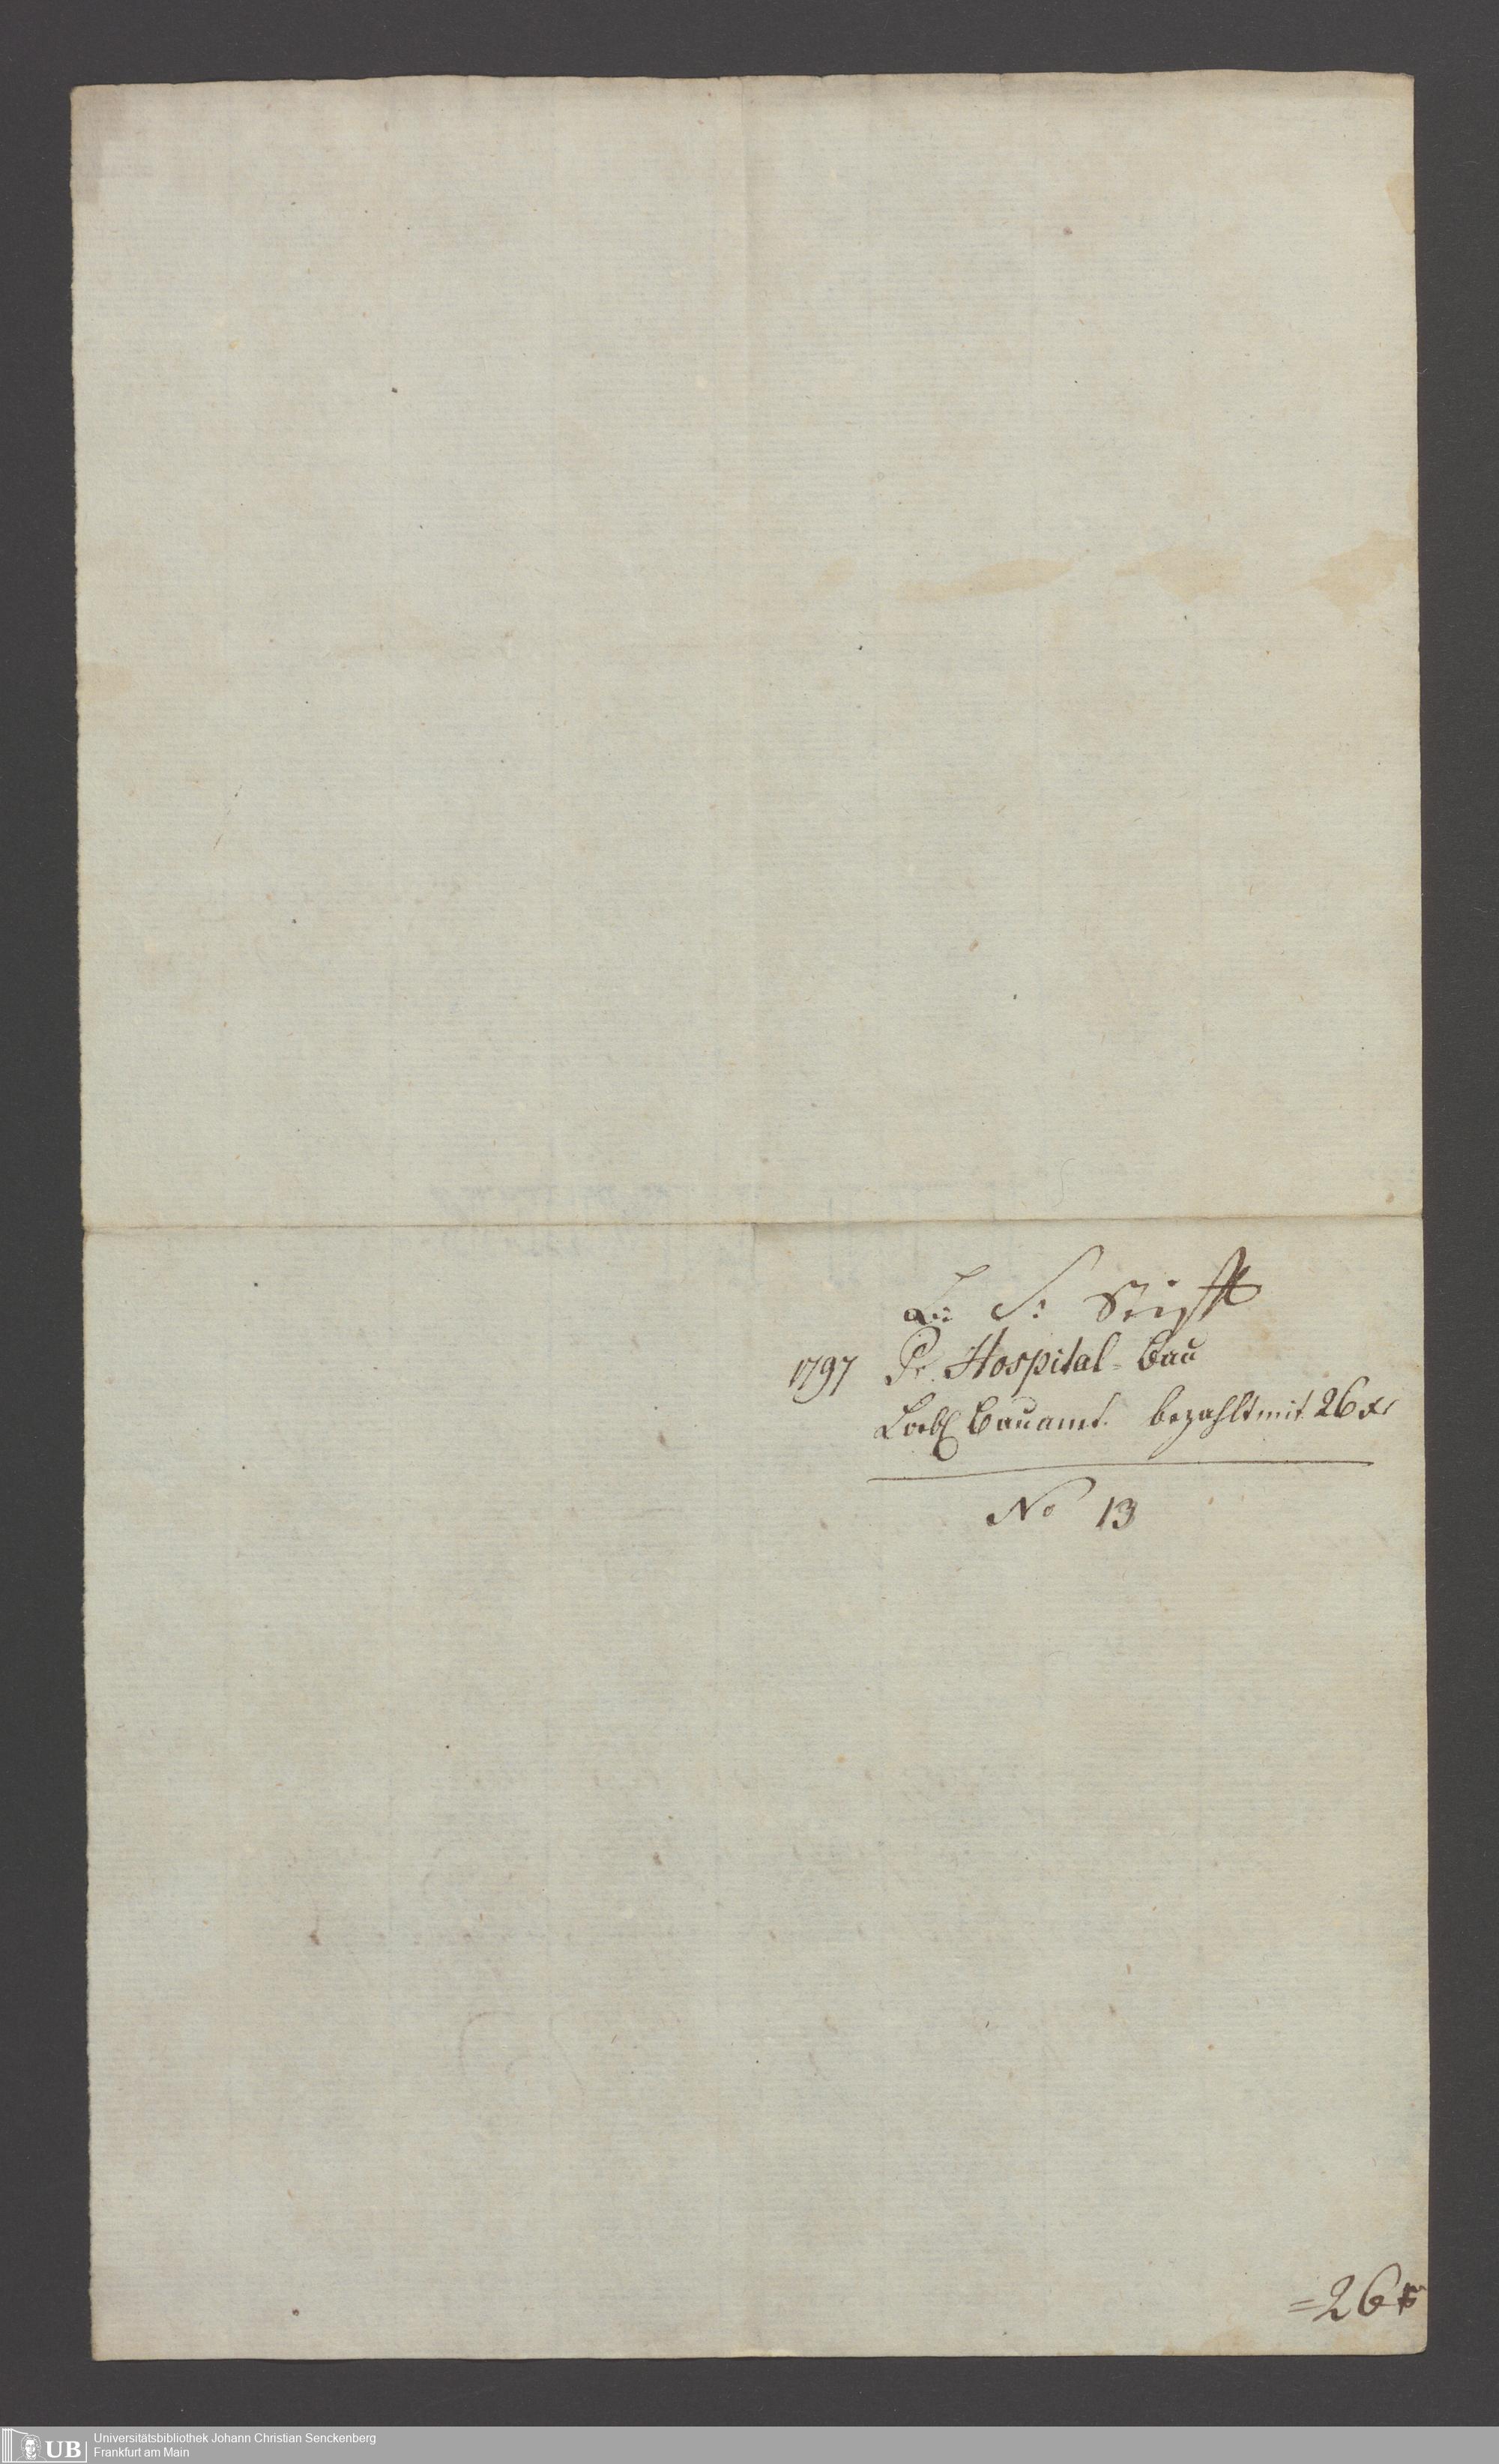 D: S: Stift
1797 Pr. Hospital-Bau
Loebl Bauamt. bezahlt mit 26 xr
No 13
=26 xr
UB
Universitätsbibliothek Johann Christian Senckenberg
Frankfurt am Main